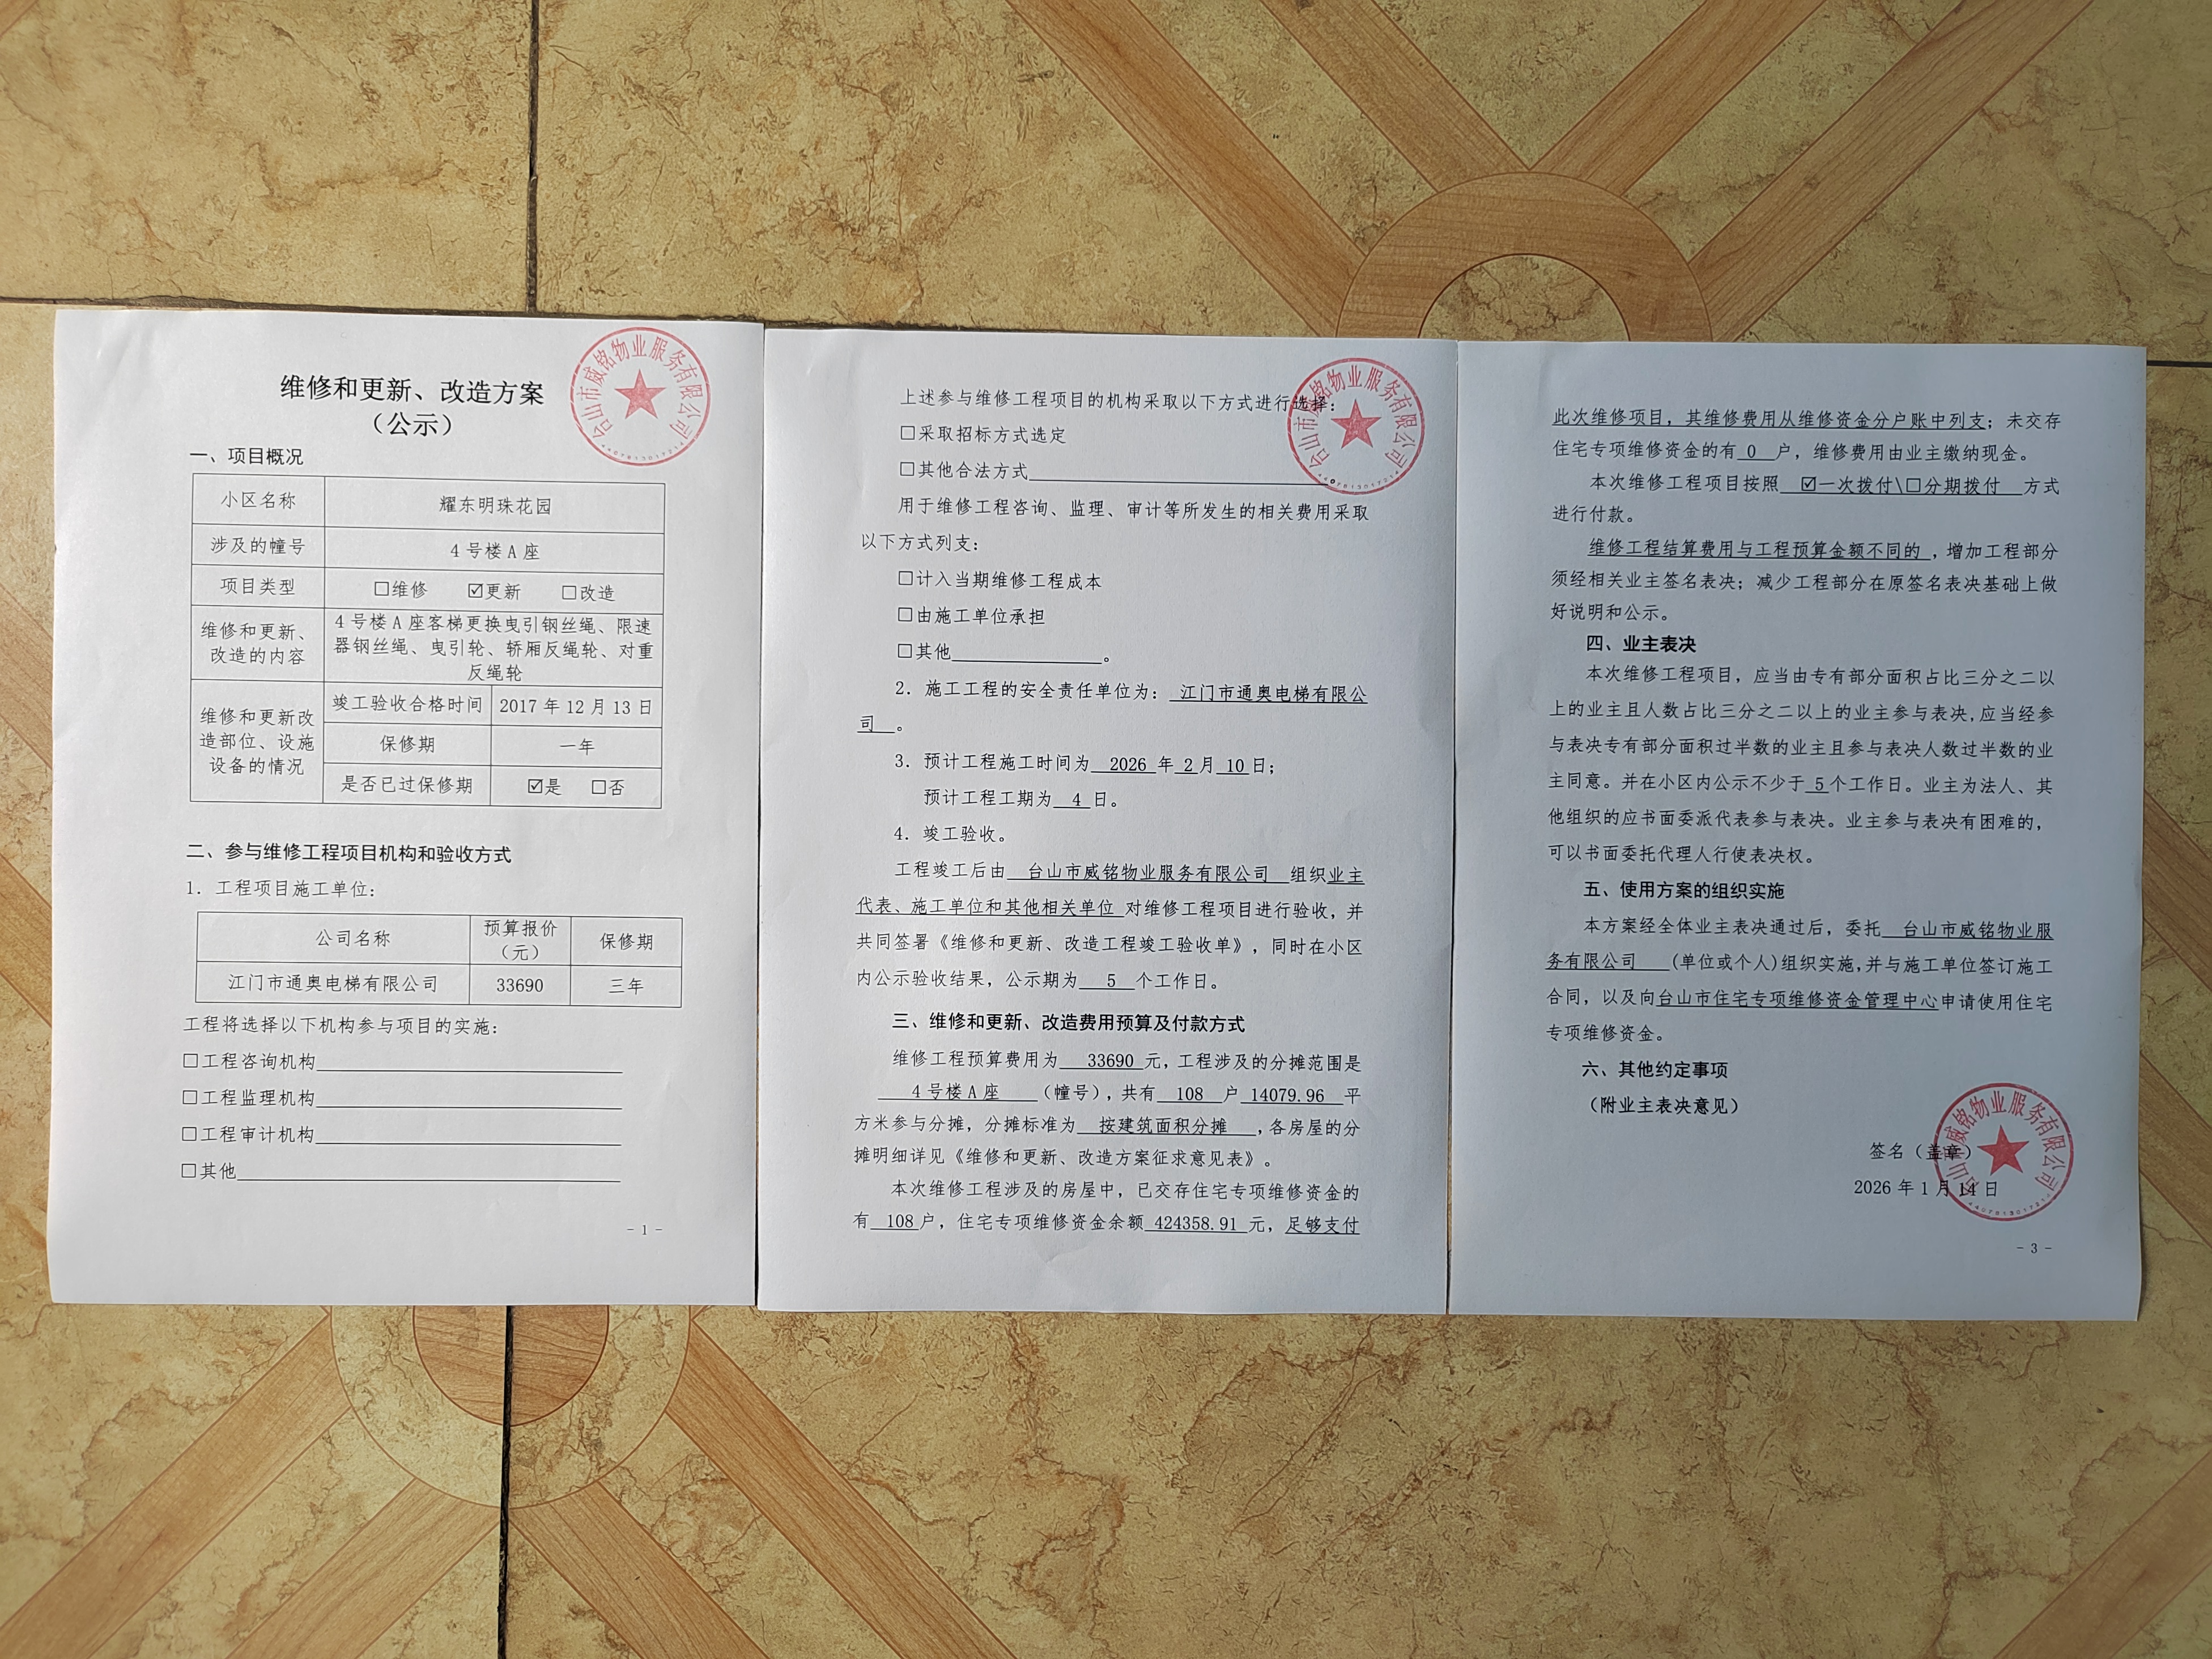 维修和更新、改造方案
（公示）
台山市威铭物业服务有限公司
一、项目概况
小区名称 耀东明珠花园
涉及的幢号 4号楼A座
项目类型 □维修 ☑更新 □改造
维修和更新、改造的内容 4号楼A座客梯更换曳引钢丝绳、限速
器钢丝绳、曳引轮、轿厢反绳轮、对重
反绳轮
维修和更新改造部位、设施设备的情况 竣工验收合格时间 2017年12月13日
保修期 一年
是否已过保修期 ☑是 □否
二、参与维修工程项目机构和验收方式
1. 工程项目施工单位：
公司名称 预算报价（元） 保修期
江门市通奥电梯有限公司 33690 三年
工程将选择以下机构参与项目的实施：
□工程咨询机构
□工程监理机构
□工程审计机构
□其他
- 1 -
上述参与维修工程项目的机构采取以下方式进行选择：
台山市威铭物业服务有限公司
□采取招标方式选定
□其他合法方式
用于维修工程咨询、监理、审计等所发生的相关费用采取
以下方式列支：
□计入当期维修工程成本
□由施工单位承担
□其他 。
2. 施工工程的安全责任单位为： 江门市通奥电梯有限公
司 。
3. 预计工程施工时间为 2026 年 2 月 10 日；
预计工程工期为 4 日。
4. 竣工验收。
工程竣工后由 台山市威铭物业服务有限公司 组织业主
代表、施工单位和其他相关单位 对维修工程项目进行验收，并
共同签署《维修和更新、改造工程竣工验收单》，同时在小区
内公示验收结果，公示期为 5 个工作日。
三、维修和更新、改造费用预算及付款方式
维修工程预算费用为 33690 元，工程涉及的分摊范围是
4号楼A座 （幢号），共有 108 户 14079.96 平
方米参与分摊，分摊标准为 按建筑面积分摊 ，各房屋的分
摊明细详见《维修和更新、改造方案征求意见表》。
本次维修工程涉及的房屋中，已交存住宅专项维修资金的
有 108 户，住宅专项维修资金余额 424358.91 元，足够支付
此次维修项目，其维修费用从维修资金分户账中列支；未交存
住宅专项维修资金的有 0 户，维修费用由业主缴纳现金。
本次维修工程项目按照 ☑一次拨付\□分期拨付 方式
进行付款。
维修工程结算费用与工程预算金额不同的 ，增加工程部分
须经相关业主签名表决；减少工程部分在原签名表决基础上做
好说明和公示。
四、业主表决
本次维修工程项目，应当由专有部分面积占比三分之二以
上的业主且人数占比三分之二以上的业主参与表决，应当经参
与表决专有部分面积过半数的业主且参与表决人数过半数的业
主同意。并在小区内公示不少于 5 个工作日。业主为法人、其
他组织的应书面委派代表参与表决。业主参与表决有困难的，
可以书面委托代理人行使表决权。
五、使用方案的组织实施
本方案经全体业主表决通过后，委托 台山市威铭物业服
务有限公司 (单位或个人)组织实施，并与施工单位签订施工
合同，以及向台山市住宅专项维修资金管理中心申请使用住宅
专项维修资金。
六、其他约定事项
（附业主表决意见）
签名（盖章）
2026年1月14日
台山市威铭物业服务有限公司
- 3 -